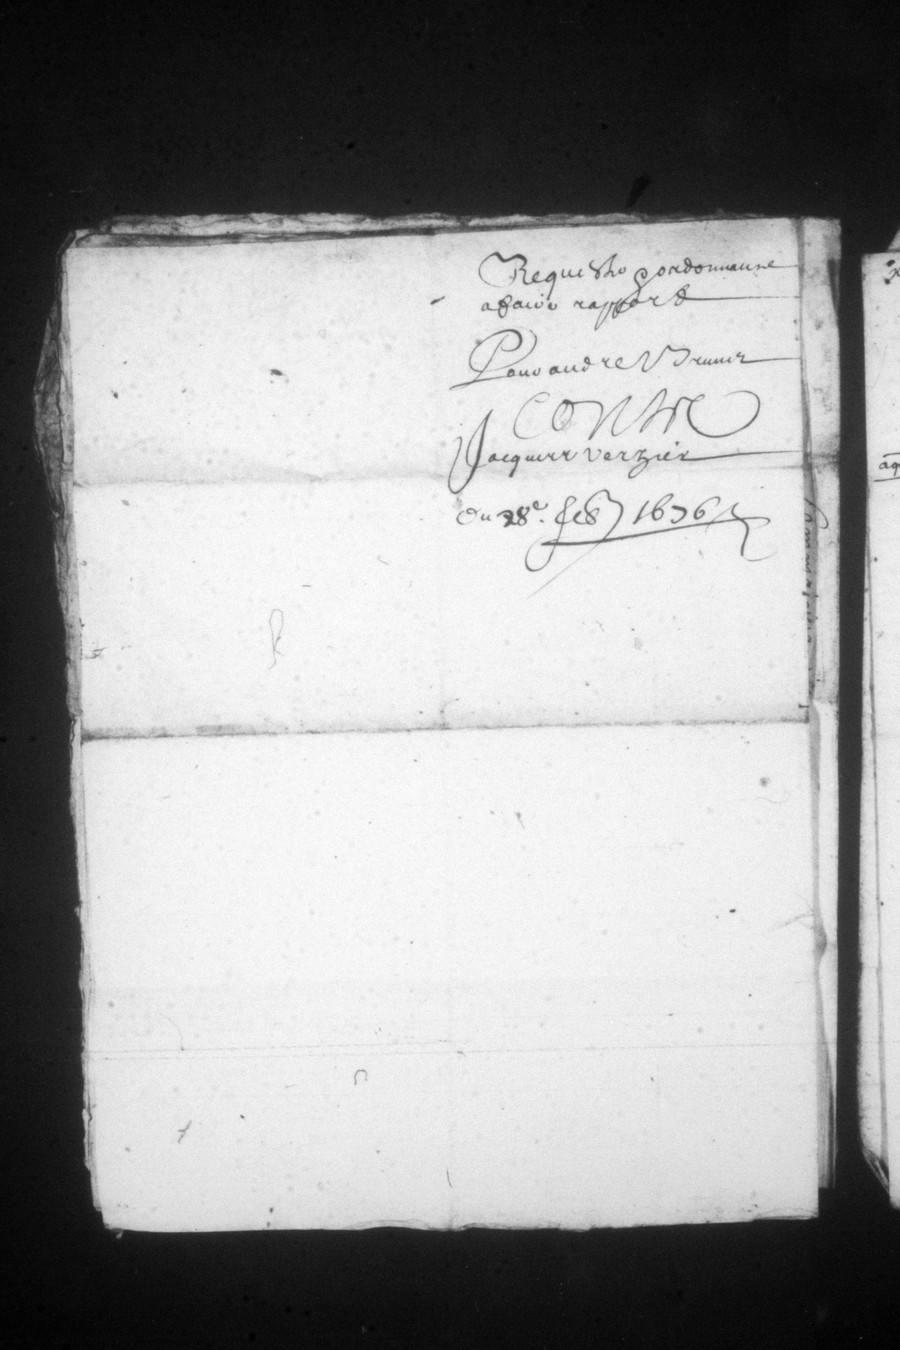 Requeste & ordonnance
affaire rapport
Pour andre Brunet
Contre
Jacques verzier
Du 28e. feb 1676